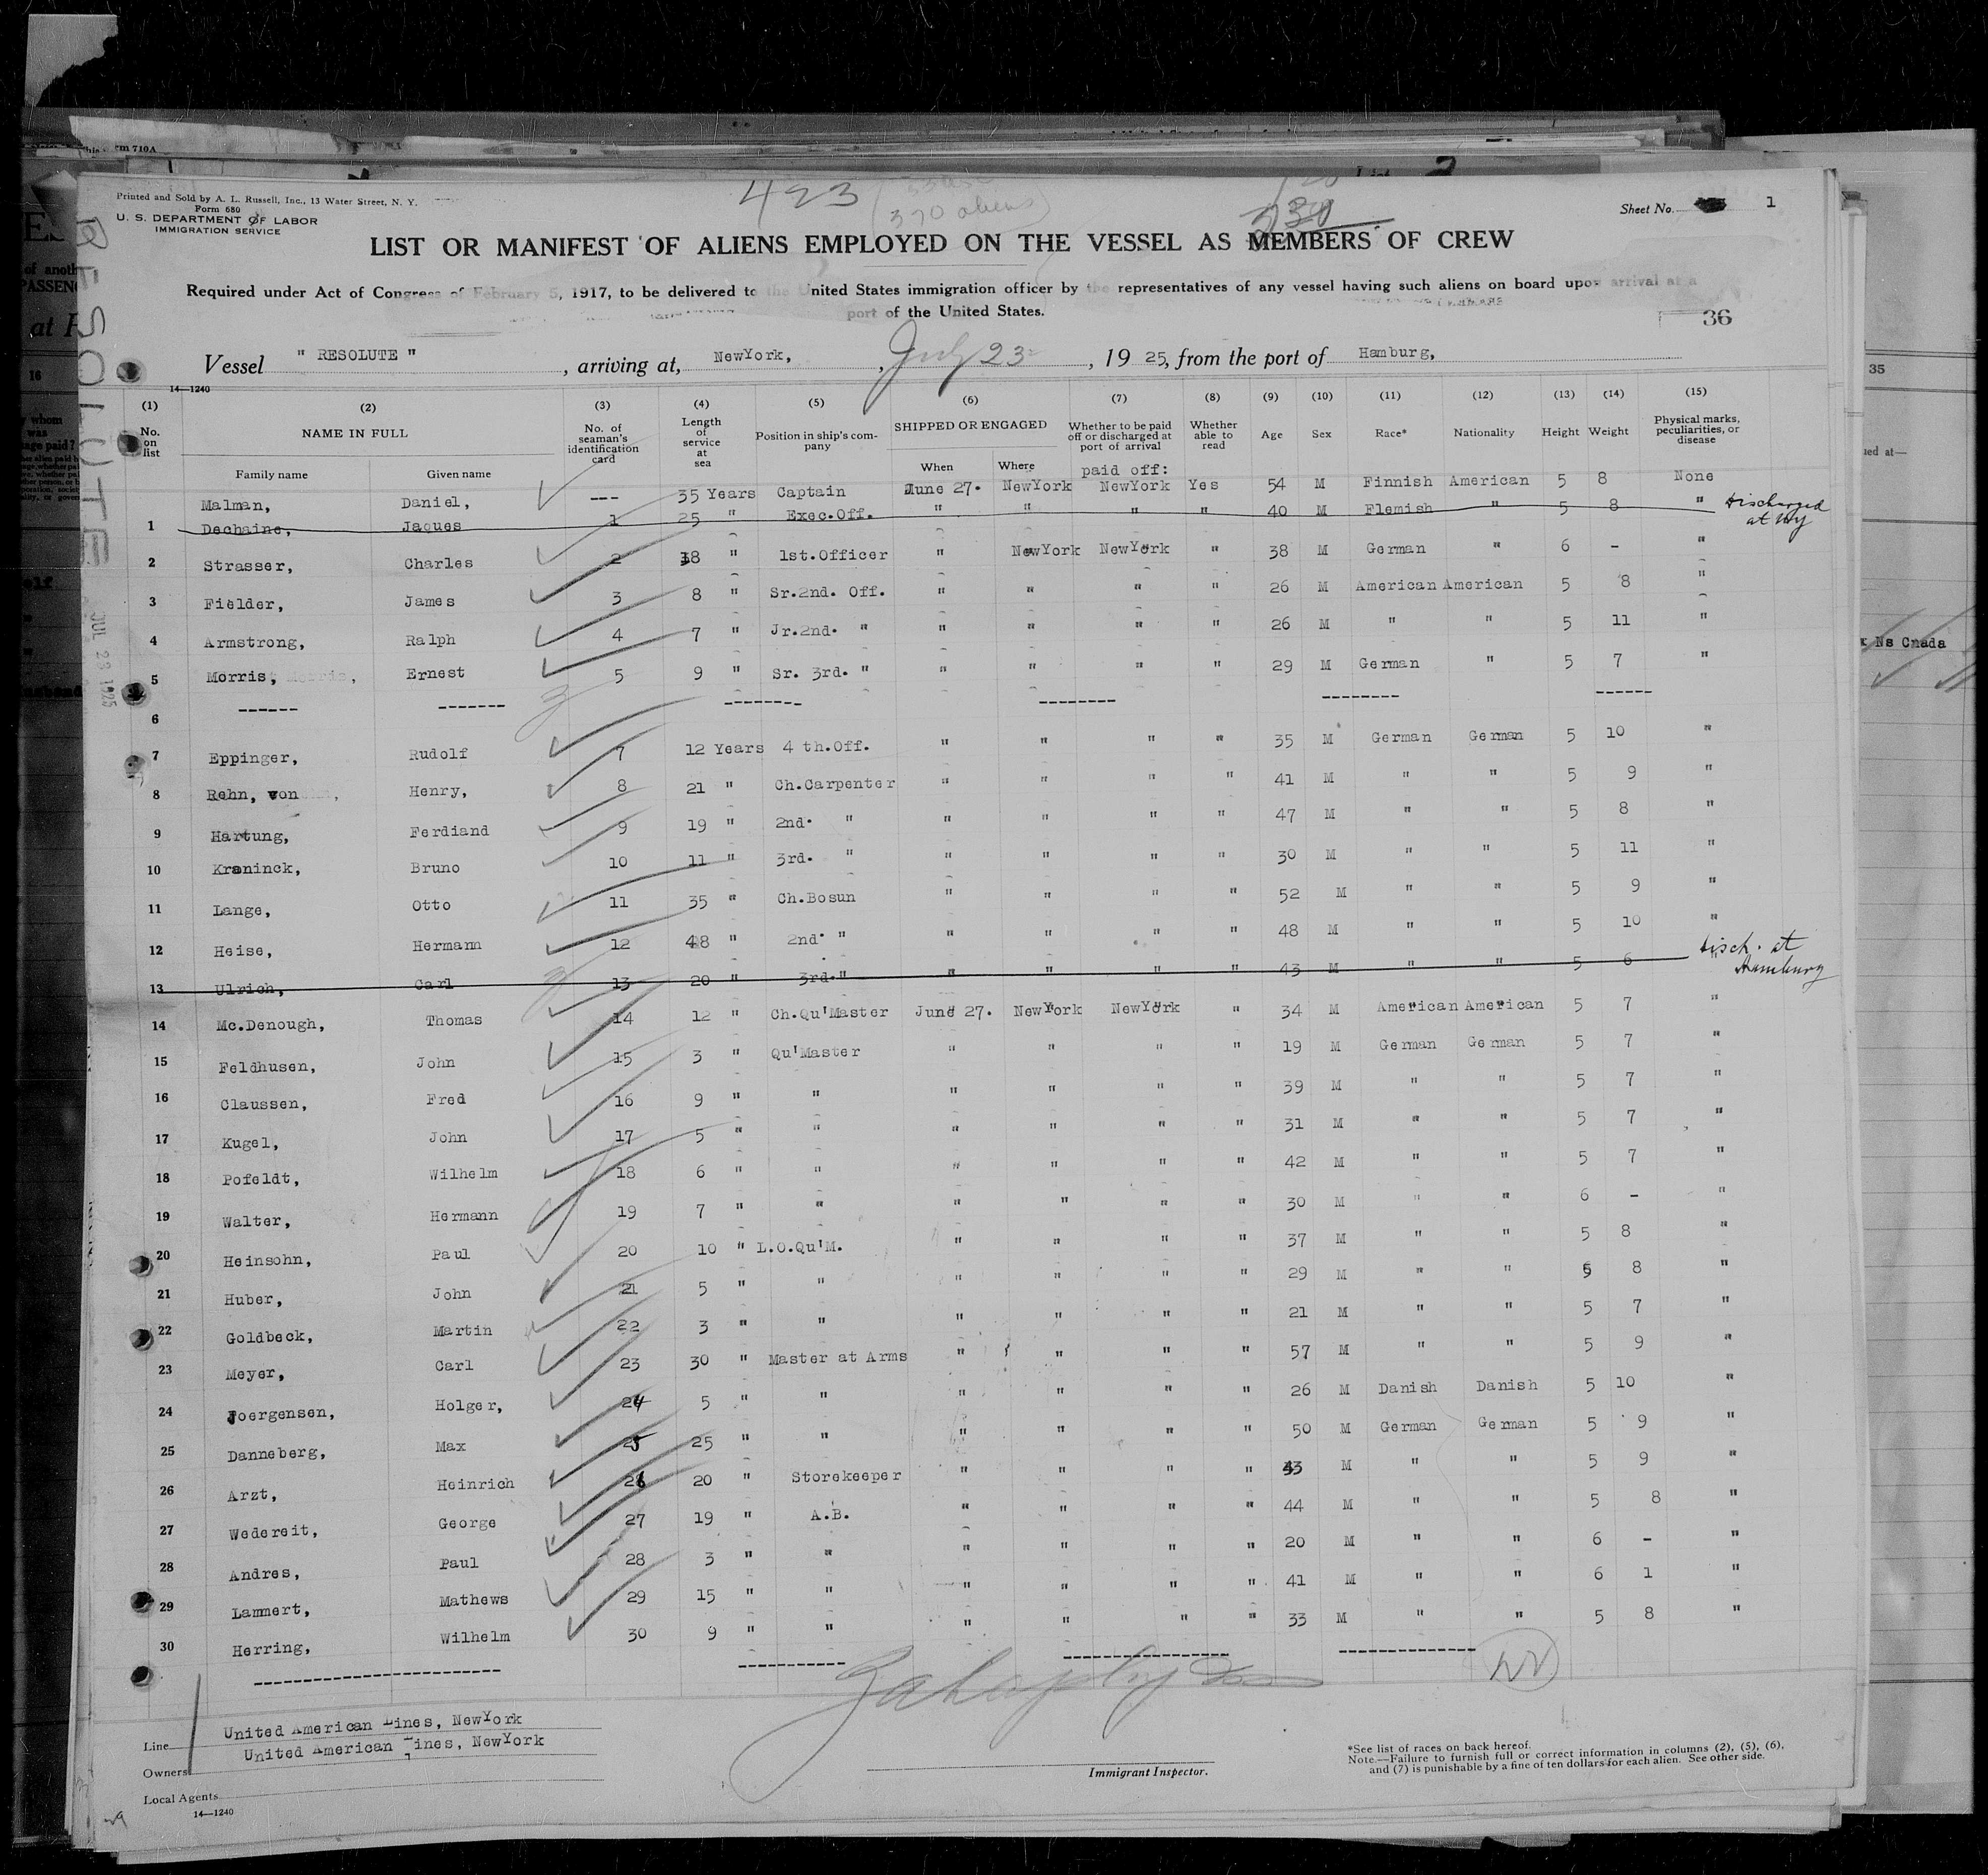 rm 710A
Printed and Sold by A. L. Russell, Inc., 13 Water Street, N. Y.
Form 680
U. S. DEPARTMENT OF LABOR
IMMIGRATION SERVICE
423
370 aliens
Sheet No. 1
LIST OR MANIFEST OF ALIENS EMPLOYED ON THE VESSEL AS MEMBERS OF CREW
Required under Act of Congress of February 5, 1917, to be delivered to the United States immigration officer by the representatives of any vessel having such aliens on board upon arrival at a
port of the United States.
36
RESOLUTE
JUL 23 1925
Vessel " RESOLUTE " , arriving at, NewYork, , July 23 , 19 25, from the port of Hamburg,
14—1240
(1) (2) (3) (4) (5) (6) (7) (8) (9) (10) (11) (12) (13) (14) (15)
No. on list NAME IN FULL Family name Given name No. of seaman's identification card Length of service at sea Position in ship's company SHIPPED OR ENGAGED When Where Whether to be paid off or discharged at port of arrival Whether able to read Age Sex Race* Nationality Height Weight Physical marks, peculiarities, or disease
paid off:
Malman, Daniel, --- 35 Years Captain June 27. NewYork NewYork Yes 54 M Finnish American 5 8 None
1 Dechaine, Jaques 1 25 " Exec.Off. " " " " 40 M Flemish " 5 8 " Discharged at NY
2 Strasser, Charles 2 18 " 1st.Officer " NewYork NewYork " 38 M German " 6 - "
3 Fielder, James 3 8 " Sr.2nd. Off. " " " " 26 M American American 5 8 "
4 Armstrong, Ralph 4 7 " Jr.2nd. " " " " " 26 M " " 5 11 "
5 Morris, Ernest 5 9 " Sr. 3rd. " " " " " 29 M German " 5 7 "
6 ------ ------- -------- -------- -------- ------
7 Eppinger, Rudolf 7 12 Years 4 th.Off. " " " " 35 M German German 5 10 "
8 Rehn, von , Henry, 8 21 " Ch.Carpenter " " " " 41 M " " 5 9 "
9 Hartung, Ferdiand 9 19 " 2nd. " " " " " 47 M " " 5 8 "
10 Kraninck, Bruno 10 11 " 3rd. " " " " " 30 M " " 5 11 "
11 Lange, Otto 11 35 " Ch.Bosun " " " " 52 M " " 5 9 "
12 Heise, Hermann 12 48 " 2nd. " " " " " 48 M " " 5 10 "
13 Ulrich, Carl 13 20 " 3rd. " " " " " 43 M " " 5 6 " Disch. at Hamburg
14 Mc.Denough, Thomas 14 12 " Ch.Qu'Master June 27. NewYork NewYork " 34 M American American 5 7 "
15 Feldhusen, John 15 3 " Qu'Master " " " " 19 M German German 5 7 "
16 Claussen, Fred 16 9 " " " " " " 39 M " " 5 7 "
17 Kugel, John 17 5 " " " " " " 31 M " " 5 7 "
18 Pofeldt, Wilhelm 18 6 " " " " " " 42 M " " 5 7 "
19 Walter, Hermann 19 7 " " " " " " 30 M " " 6 - "
20 Heinsohn, Paul 20 10 " L.O.Qu'M. " " " " 37 M " " 5 8 "
21 Huber, John 21 5 " " " " " " 29 M " " 5 8 "
22 Goldbeck, Martin 22 3 " " " " " " 21 M " " 5 7 "
23 Meyer, Carl 23 30 " Master at Arms " " " " 57 M " " 5 9 "
24 Joergensen, Holger, 24 5 " " " " " " 26 M Danish Danish 5 10 "
25 Danneberg, Max 25 25 " " " " " " 50 M German German 5 9 "
26 Arzt, Heinrich 26 20 " Storekeeper " " " " M " " 5 9 "
27 Wedereit, George 27 19 " A.B. " " " " 44 M " " 5 8 "
28 Andres, Paul 28 3 " " " " " " 20 M " " 6 - "
29 Lammert, Mathews 29 15 " " " " " " 41 M " " 6 1 "
30 Herring, Wilhelm 30 9 " " " " " " 33 M " " 5 8 "
Line United American Lines, NewYork
Owners United American Lines, NewYork
Local Agents
14—1240
Immigrant Inspector.
*See list of races on back hereof.
Note.—Failure to furnish full or correct information in columns (2), (5), (6),
and (7) is punishable by a fine of ten dollars for each alien. See other side.
35
Ns Cnada